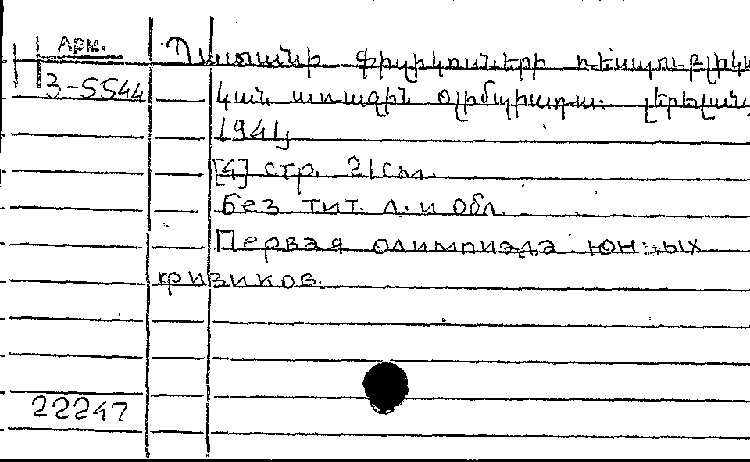 Арм.
3-5544
Պատանի ֆիզիկոսների ռեսպուբլիկա
կան առաջին օլիմպիադա. Երևան,
1941,
[4] стр. 21 см.
Без тит. л. и обл.
Первая олимпиада юных
физиков.
22247